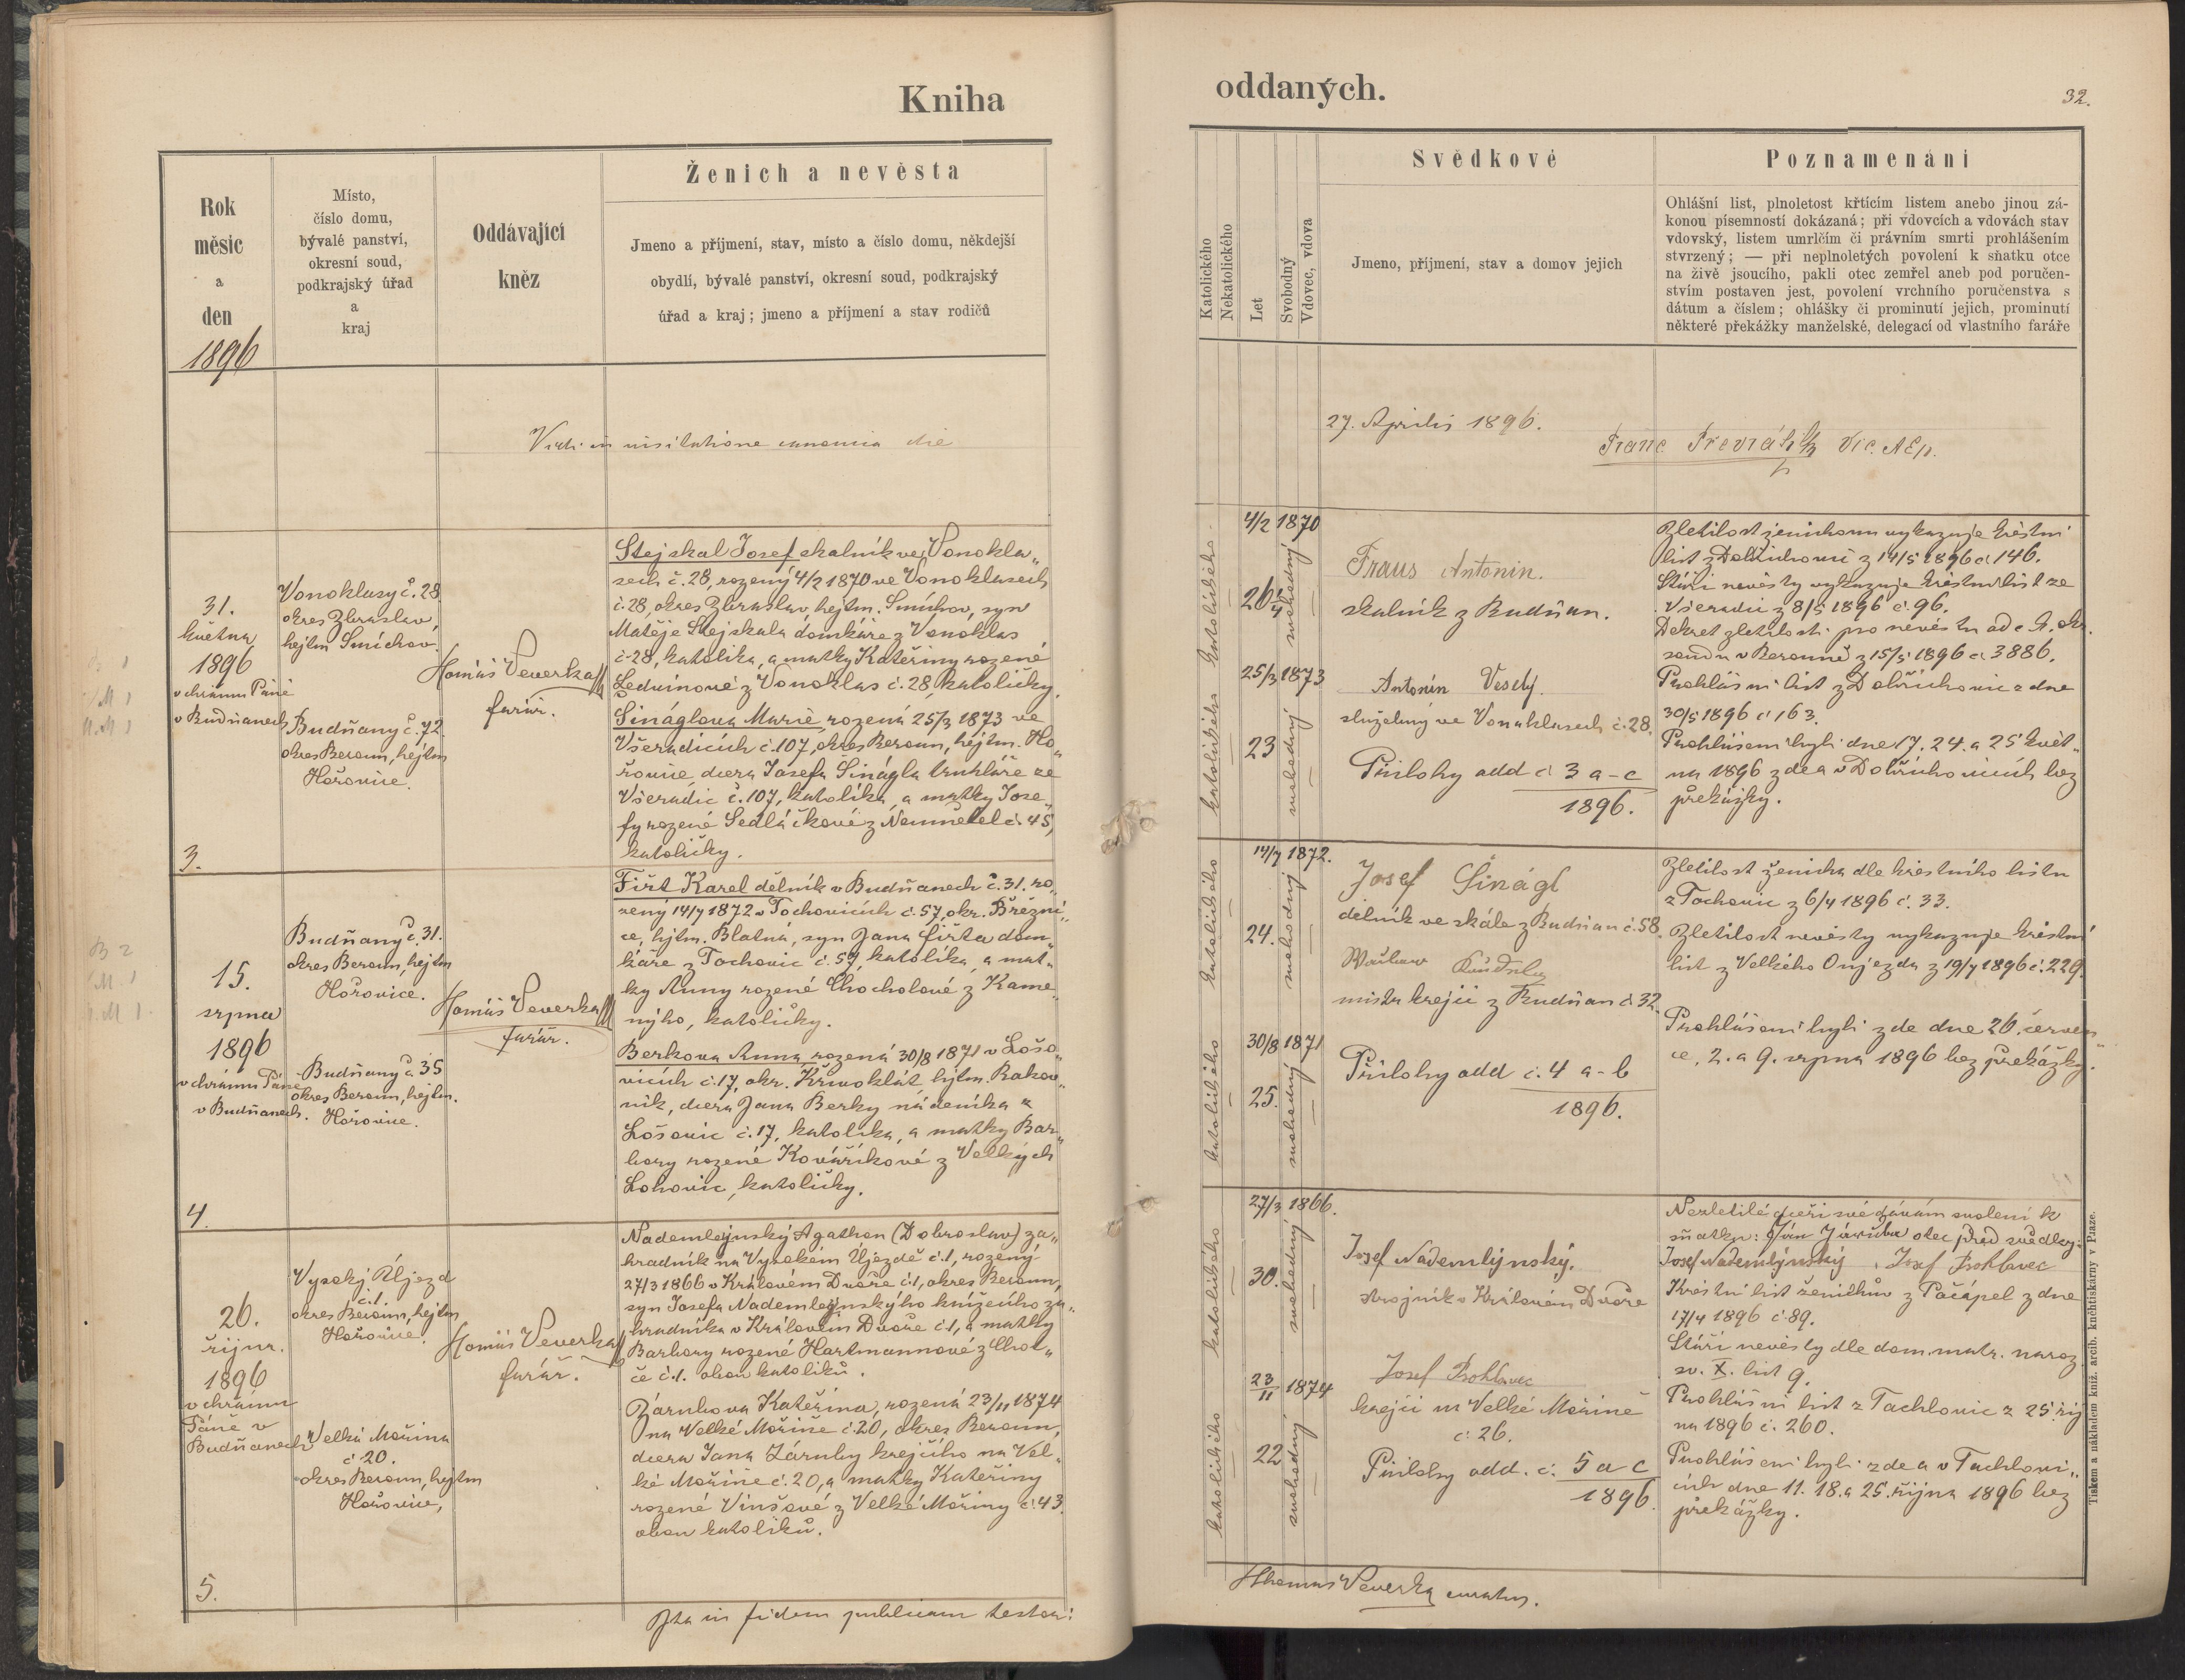 Kniha
oddaných.
32.
Rok
měsíc
a
den
1896
Místo,
číslo domu,
bývalé panství,
okresní soud,
podkrajský úřad
a
kraj
Oddávající
kněz
Ženich a nevěsta
Jmeno a příjmení, stav, místo a číslo domu, někdejší
obydlí, bývalé panství, okresní soud, podkrajský
úřad a kraj; jmeno a příjmení a stav rodičů
Katolického
Nekatolického
Let
Svobodný
Vdovec, vdova
Svědkové
Jmeno, příjmení, stav a domov jejich
Poznamenání
Ohlášní list, plnoletost křticím listem anebo jinou zá-
konou písemností dokázaná; při vdovcích a vdovách stav
vdovský, listem umrlčím či právním smrti prohlášením
stvrzený; — při neplnoletých povolení k sňatku otce
na živě jsoucího, pakli otec zemřel aneb pod poručen-
stvím postaven jest, povolení vrchního poručenstva s
dátum a číslem; ohlášky či prominutí jejich, prominutí
některé překážky manželské, delegací od vlastního faráře
Vidi in visitatione canonica die
27. Aprilis 1896.
Franc. Převrátil Vic. AEp.
31.
května
1896
v chrámu Páně
v Budňanech
3.
Vonoklasy č. 28
okres Zbraslav,
hejtm Smíchov.
Budňany č. 72
okres Beroun, hejtm
Hořovice.
Tomáš Veverka
farář.
Stejskal Josef skalník ve Vonokla„
sech č. 28, rozený 4/2 1870 ve Vonoklasech
č. 28, okres Zbraslav, hejtm. Smíchov, syn
Matěje Stejskala domkáře z Vonoklas
č. 28, katolíka, a matky Kateřiny rozené
Ledvinové z Vonoklas č. 28, katoličky.
Sináglova Marie, rozená 25/3 1873 ve
Všeradicích č. 107, okres Beroun, hejtm. Ho„
řovice, dcera Josefa Sinágla truhláře ze
Všeradic č. 107, katolíka, a matky Jose„
fy rozené Sedláčkové z Neumětel č. 45,
katoličky.
katolického
katolického
4/2 1870
26 1/4
svobodný
25/3 1873
23
svobodný
Fraus Antonin.
skalník z Budňan.
Antonín Veselý.
služebný ve Vonoklasech č. 28.
Přílohy add č 3 a-c
1896.
Zletilost ženichovu vykazuje křestní
list z Dobřichovic z 14/5 1896 č. 146.
Stáří nevěsty vykazuje křestní list ze
Všeradic z 8/5 1896 č. 96.
Dekret zletilosti pro nevěstu od c. k. okr.
soudu v Berouně z 15/5 1896 č. 3886.
Prohlášní list z Dobřichovic z dne
30/5 1896 č 163.
Prohlášeni byli dne 17. 24. a 25 květ„
na 1896 zde a v Dobřichovicích bez
překážky.
15.
srpna
1896
v chrámu Páně
v Budňanech.
4.
Budňany č. 31.
okres Beroun, hejtm
Hořovice.
Budňany č. 35
okres Beroun, hejtm.
Hořovice.
Tomáš Veverka
farář.
Fišt Karel dělník v Budňanech č. 31. ro„
zený 14/7 1872 v Tochovicích č. 57, okr. Březni„
ce, hejtm. Blatná, syn Jana Fišta dom„
káře z Tochovic č. 57, katolíka, a mat„
ky Anny rozené Chocholové z Kame„
nýho, katoličky.
Berkova Anna rozená 30/8 1871 v Lošo„
vicích č. 17, okr. Křivoklát, hejtm. Rakov„
ník, dcera Jana Berky nádeníka z
Lošovic č. 17, katolíka, a matky Bar„
bory rozené Kovaříkové z Velkých
Lohovic, katoličky.
katolického
katolického
14/7 1872.
24.
svobodný
30/8 1871
25.
svobodný
Josef Sinágl
dělník ve skále z Budňan č. 58.
Václav
mistr krejčí z Budňan č 32.
Přílohy add č. 4 a-b
1896.
Zletilost ženicha dle křestního listu
z Tochovic z 6/4 1896 č. 33.
Zletilost nevěsty vykazuje křestní
list z Velkého Oujezda z 19/7 1896 č. 229.
Prohlášeni byli zde dne 26. červen„
ce, 2. a 9. srpna 1896 bez překážky.
26.
října.
1896
v chrámu
Páně v
Budňanech
5.
Vysoký Újezd
č. 1.
okres Beroun, hejtm
Hořovice.
Velká Mořina
č 20.
okres Beroun, hejtm
Hořovice,
Tomáš Veverka
farář.
Nademlejnský Agathon (Dobroslav) za„
hradník na Vysokém Újezdě č. 1, rozený
27/3 1866 v Králověm Dvoře č. 1, okres Beroun,
syn Josefa Nademlejnskýho knížecího za„
hradníka v Králověm Dvoře č. 1, a matky
Barbory rozené Hartmannové z Chot„
če č. 1. obou katolíků.
Zárubova Kateřina, rozená 23/11 1874
na Velké Mořině č. 20, okres Beroun,
dcera Jana Záruby krejčího na Vel„
ké Mořině č. 20, a matky Kateřiny
rozené Vinšové z Velké Mořiny č. 43.
obou katolíků.
katolického
katolického
27/3 1866.
30.
svobodný
23/11 1874
22
svobodný
Josef Nademlýnský.
strojník v Králověm Dvoře
Josef Prohlavec
krejčí na Velké Mořině
č. 26.
Přílohy add. č. 5 a c
1896.
Nezletilé dceři své dávám svolení k
sňatku: Jan Záruba otec před svědky:
Josef Nademlýnský. Josef Prohlavec
Křestní list ženichův z Počápel z dne
17/4 1896 č. 89.
Stáří nevěsty dle dom. matr. naroz.
sv. X. list 9.
Prohlášní list z Tachlovic z 25 říj„
na 1896 č. 260.
Prohlášeni byli zde a v Tachlovi„
cích dne 11. 18. a 25. října 1896 bez
překážky.
Ita in fidem publicam testor:
Thomas Veverka curatus.
Tiskem a nákladem kníž. arcib. knihtiskárny v Praze.